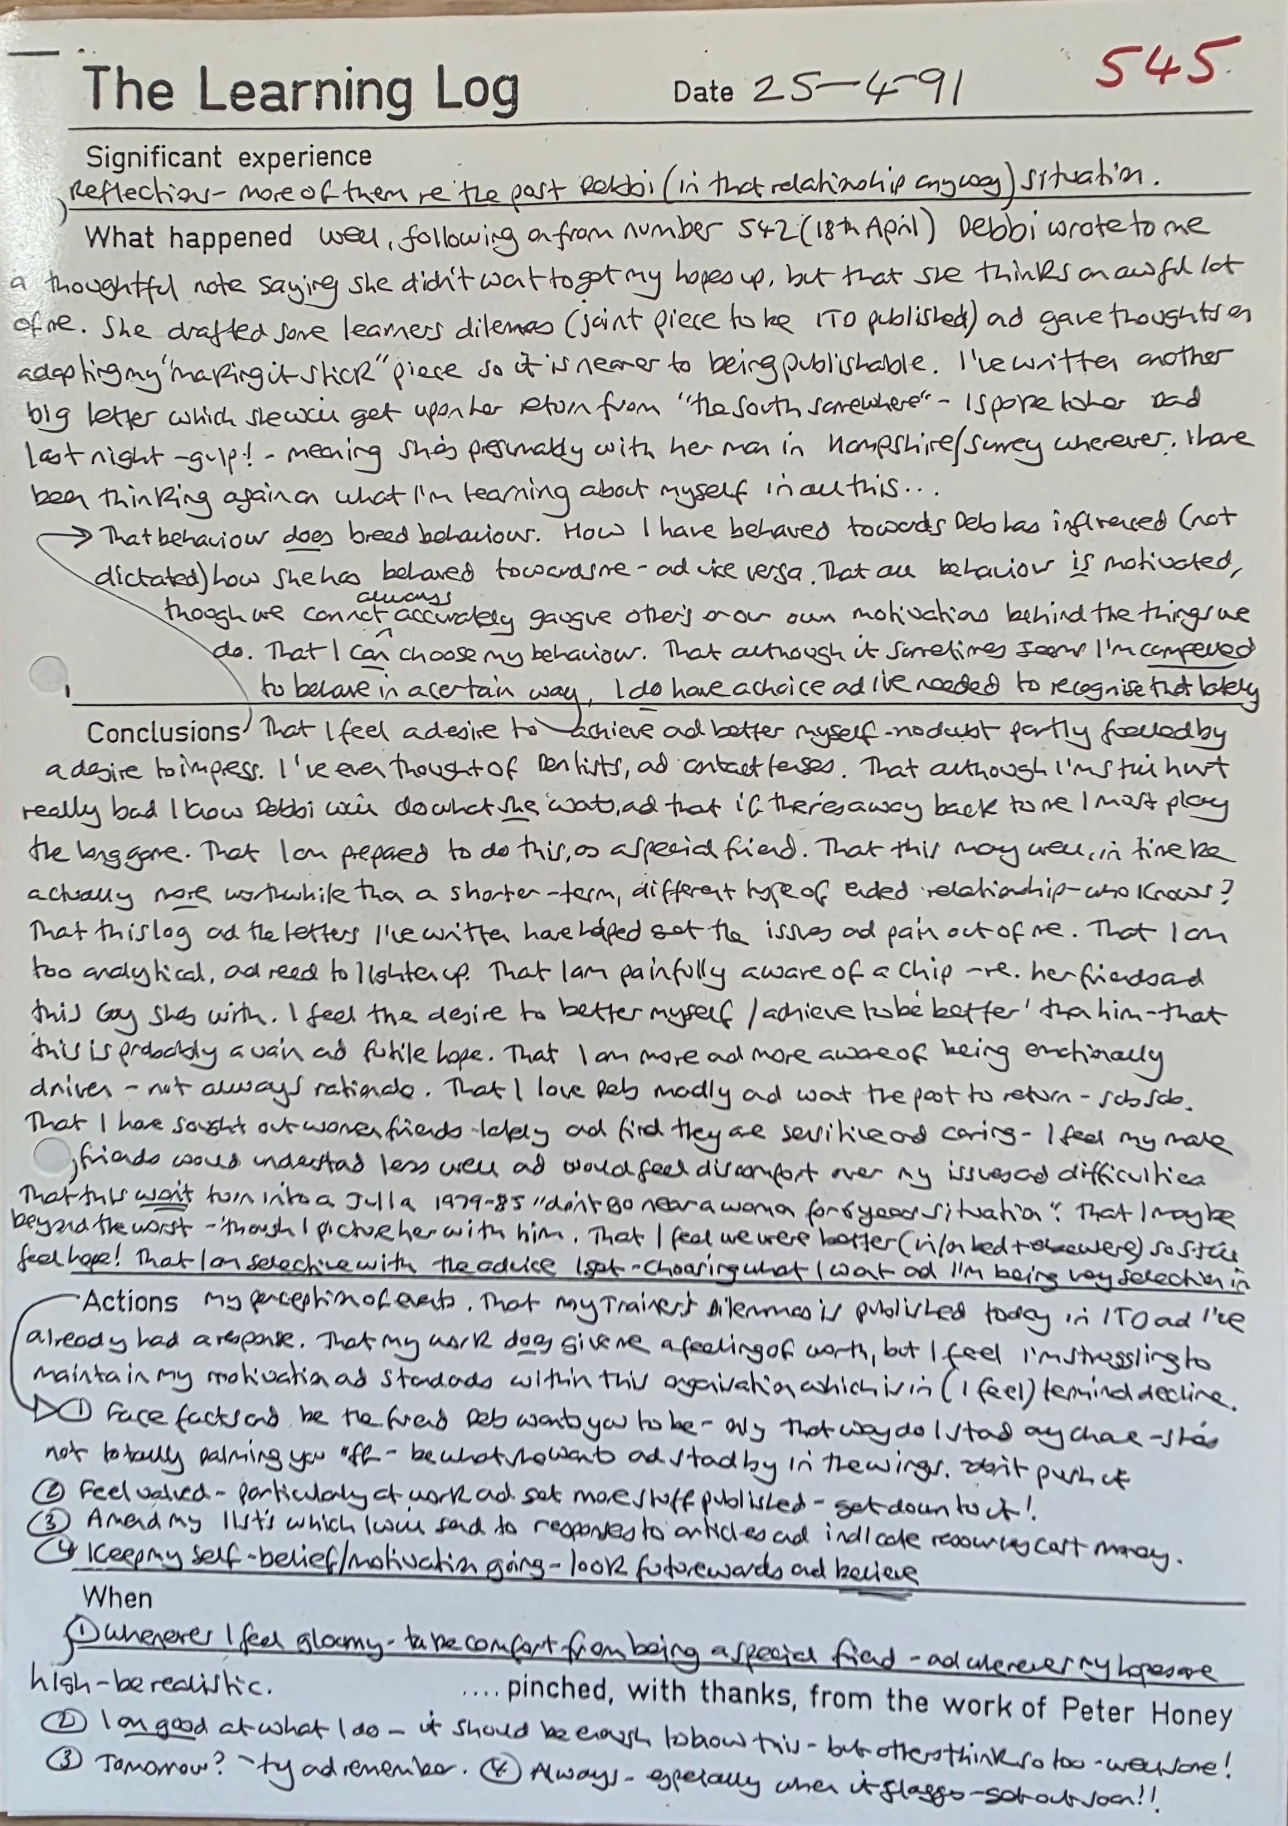 The Learning Log Date 25-4-91 545
Significant experience
Reflections - more of them re the post Debbi (in that relationship anyway) situation.
What happened Well, following on from number 542 (18th April) Debbi wrote to me
a thoughtful note saying she didn't want to get my hopes up, but that she thinks an awful lot
of me. She drafted some learners dilemas (joint piece to be ITD published) and gave thoughts on
adapting my "making it stick" piece so it is nearer to being publishable. I've written another
big letter which she will get upon her return from "the South somewhere" - I spoke to her Dad
last night - gulp! - meaning she's presumably with her man in Hampshire/Surrey wherever. I have
been thinking again on what I'm learning about myself in all this...
→ That behaviour does breed behaviour. How I have behaved towards Deb has influenced (not
dictated) how she has behaved towards me - and vice versa. That all behaviour is motivated,
though we cannot always accurately gaugue others or our own motivations behind the things we
do. That I can choose my behaviour. That although it sometimes seems I'm compelled
to behave in a certain way, I do have a choice and I've needed to recognise that lately
Conclusions That I feel a desire to achieve and better myself - no doubt partly fuelled by
a desire to impress. I've even thought of Dentists, and contact lenses. That although I'm still hurt
really bad I know Debbi will do what she wants, and that if there's a way back to me I must play
the long game. That I am prepared to do this, as a special friend. That this may well, in time be
actually more worthwhile than a shorter-term, different type of ended relationship - who knows?
That this log and the letters I've written have helped get the issues and pain out of me. That I am
too analytical, and need to lighten up. That I am painfully aware of a chip - re. her friends and
this guy she's with. I feel the desire to better myself / achieve to be 'better' than him - that
this is probably a vain and futile hope. That I am more and more aware of being emotionally
driven - not always rationale. That I love Deb madly and want the past to return - sob sob.
That I have sought out women friends lately and find they are sensitive and caring - I feel my male
friends would understand less well and would feel discomfort over my issues and difficulties
That this won't turn into a Julia 1979-85 "don't go near a woman for 6 years situation". That I maybe
beyond the worst - though I picture her with him. That I feel we were better (in/on bed + elsewhere) so still
feel hope! That I am selective with the advice I get - choosing what I want and I'm being very selective in
Actions my perception of events. That my Trainer's Dilemmas is published today in ITD and I've
already had a response. That my work does give me a feeling of worth, but I feel I'm struggling to
maintain my motivation and standards within this organisation which is in (I feel) terminal decline.
① Face facts and be the friend Deb wants you to be - only that way do I stand any chance - she's
not totally palming you off - be what she wants and stand by in the wings. Don't push it
② Feel valued - particularly at work and get more stuff published - get down to it!
③ Amend my lists which I will send to responses to articles and indicate resources cost money.
④ Keep my self-belief/motivation going - look futurewards and believe
When
① Whenever I feel gloomy - take comfort from being a special friend - and whenever my hopes are
high - be realistic.
.... pinched, with thanks, from the work of Peter Honey
② I am good at what I do - it should be enough to know this - but others think so too - well some!
③ Tomorrow? - try and remember. ④ Always - especially when it flaggs - sort out soon!!